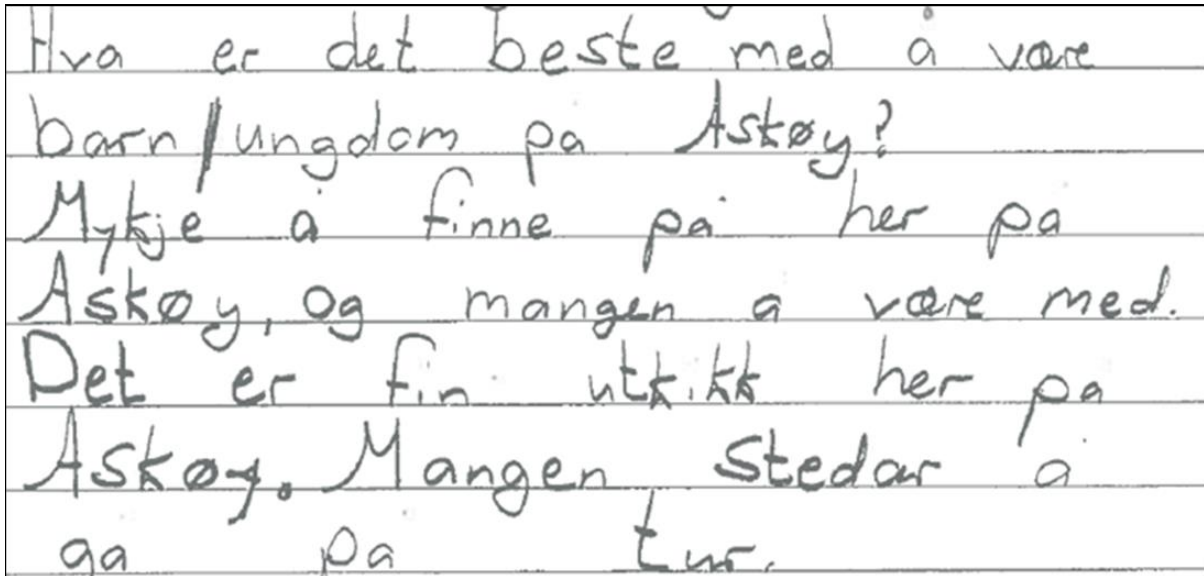 Hva er det beste med å være
barn/ungdom på Askøy?
Mykje å finne på her på
Askøy, og mangen å være med.
Det er fin utkikk her på
Askøy. Mangen stedar å
gå på tur.